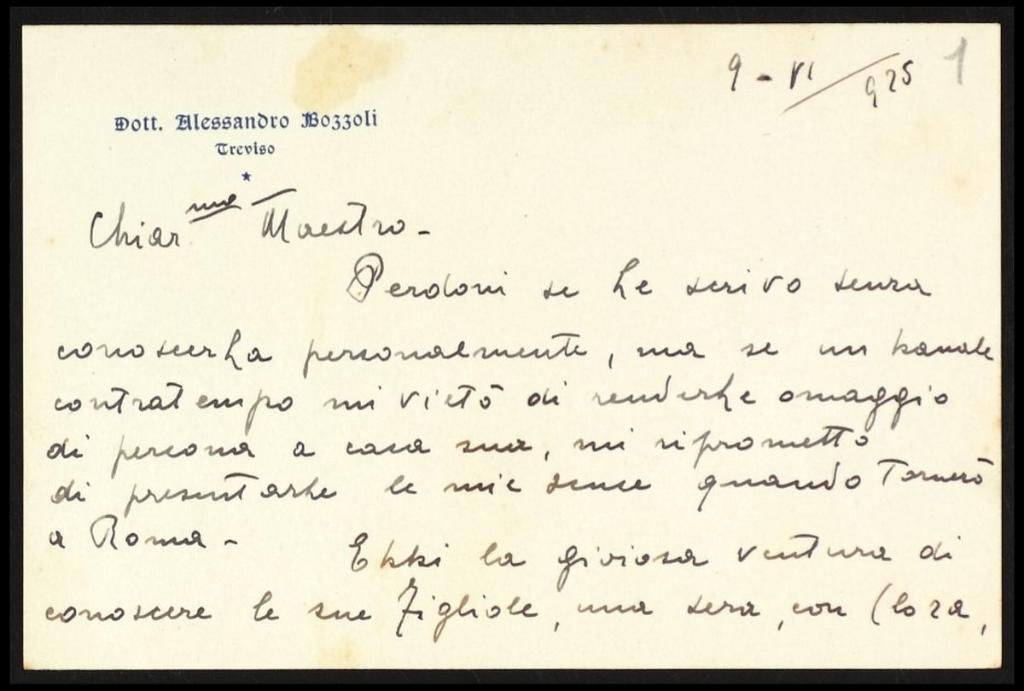 9 - VI / 925 1
Dott. Alessandro Bozzoli
Treviso
Chiar mo Maestro -
Perdoni se Le scrivo senza
conoscerLa personalmente, ma se un banale
contratempo mi vietò di renderLe omaggio
di persona a casa sua, mi riprometto
di presentarLe le mie scuse quando tornerò
a Roma -
Ebbi la gioiosa ventura di
conoscere le sue figliole, una sera, con